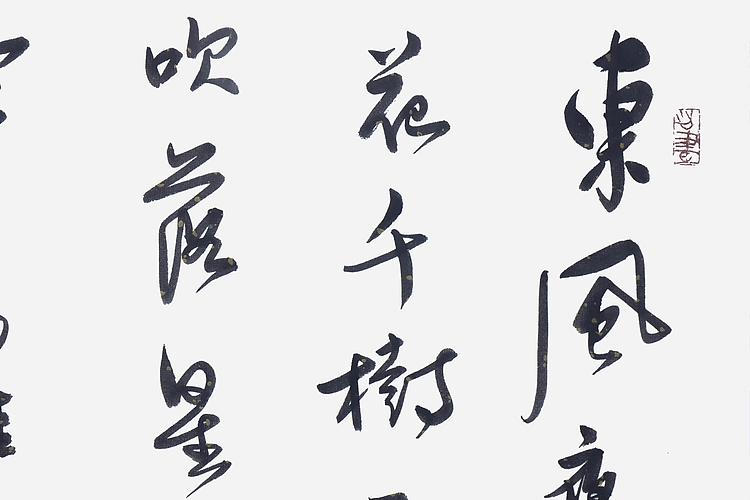 東風夜
花千樹
吹落星